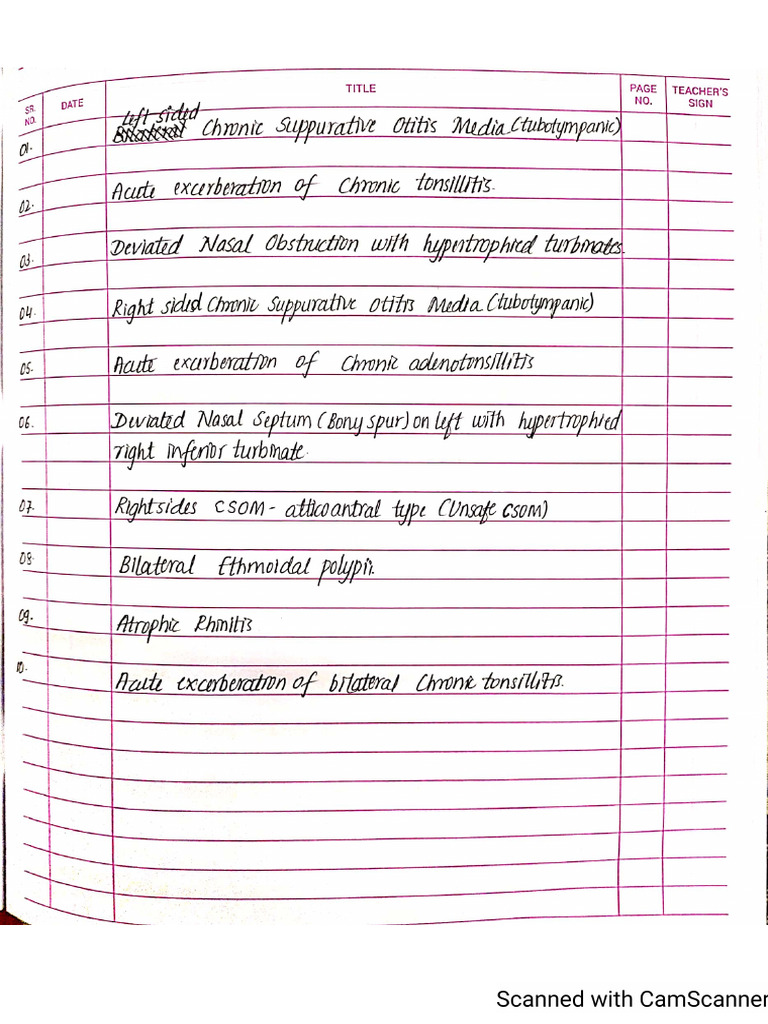 SR. NO. DATE TITLE PAGE NO. TEACHER'S SIGN
left sided
01. Chronic Suppurative Otitis Media (tubotympanic)
02. Acute excerberation of Chronic tonsillitis.
03. Deviated Nasal Obstruction with hypertrophied turbinates.
04. Right sided Chronic Suppurative Otitis Media (tubotympanic)
05. Acute exarberation of Chronic adenotonsillitis
06. Deviated Nasal Septum (Bony spur) on left with hypertrophied
right inferior turbinate.
07. Right sides CSOM - atticoantral type (Unsafe CSOM)
08. Bilateral Ethmoidal polypii.
09. Atrophic Rhinitis
10. Acute excerberation of bilateral Chronic tonsillitis.
Scanned with CamScanner